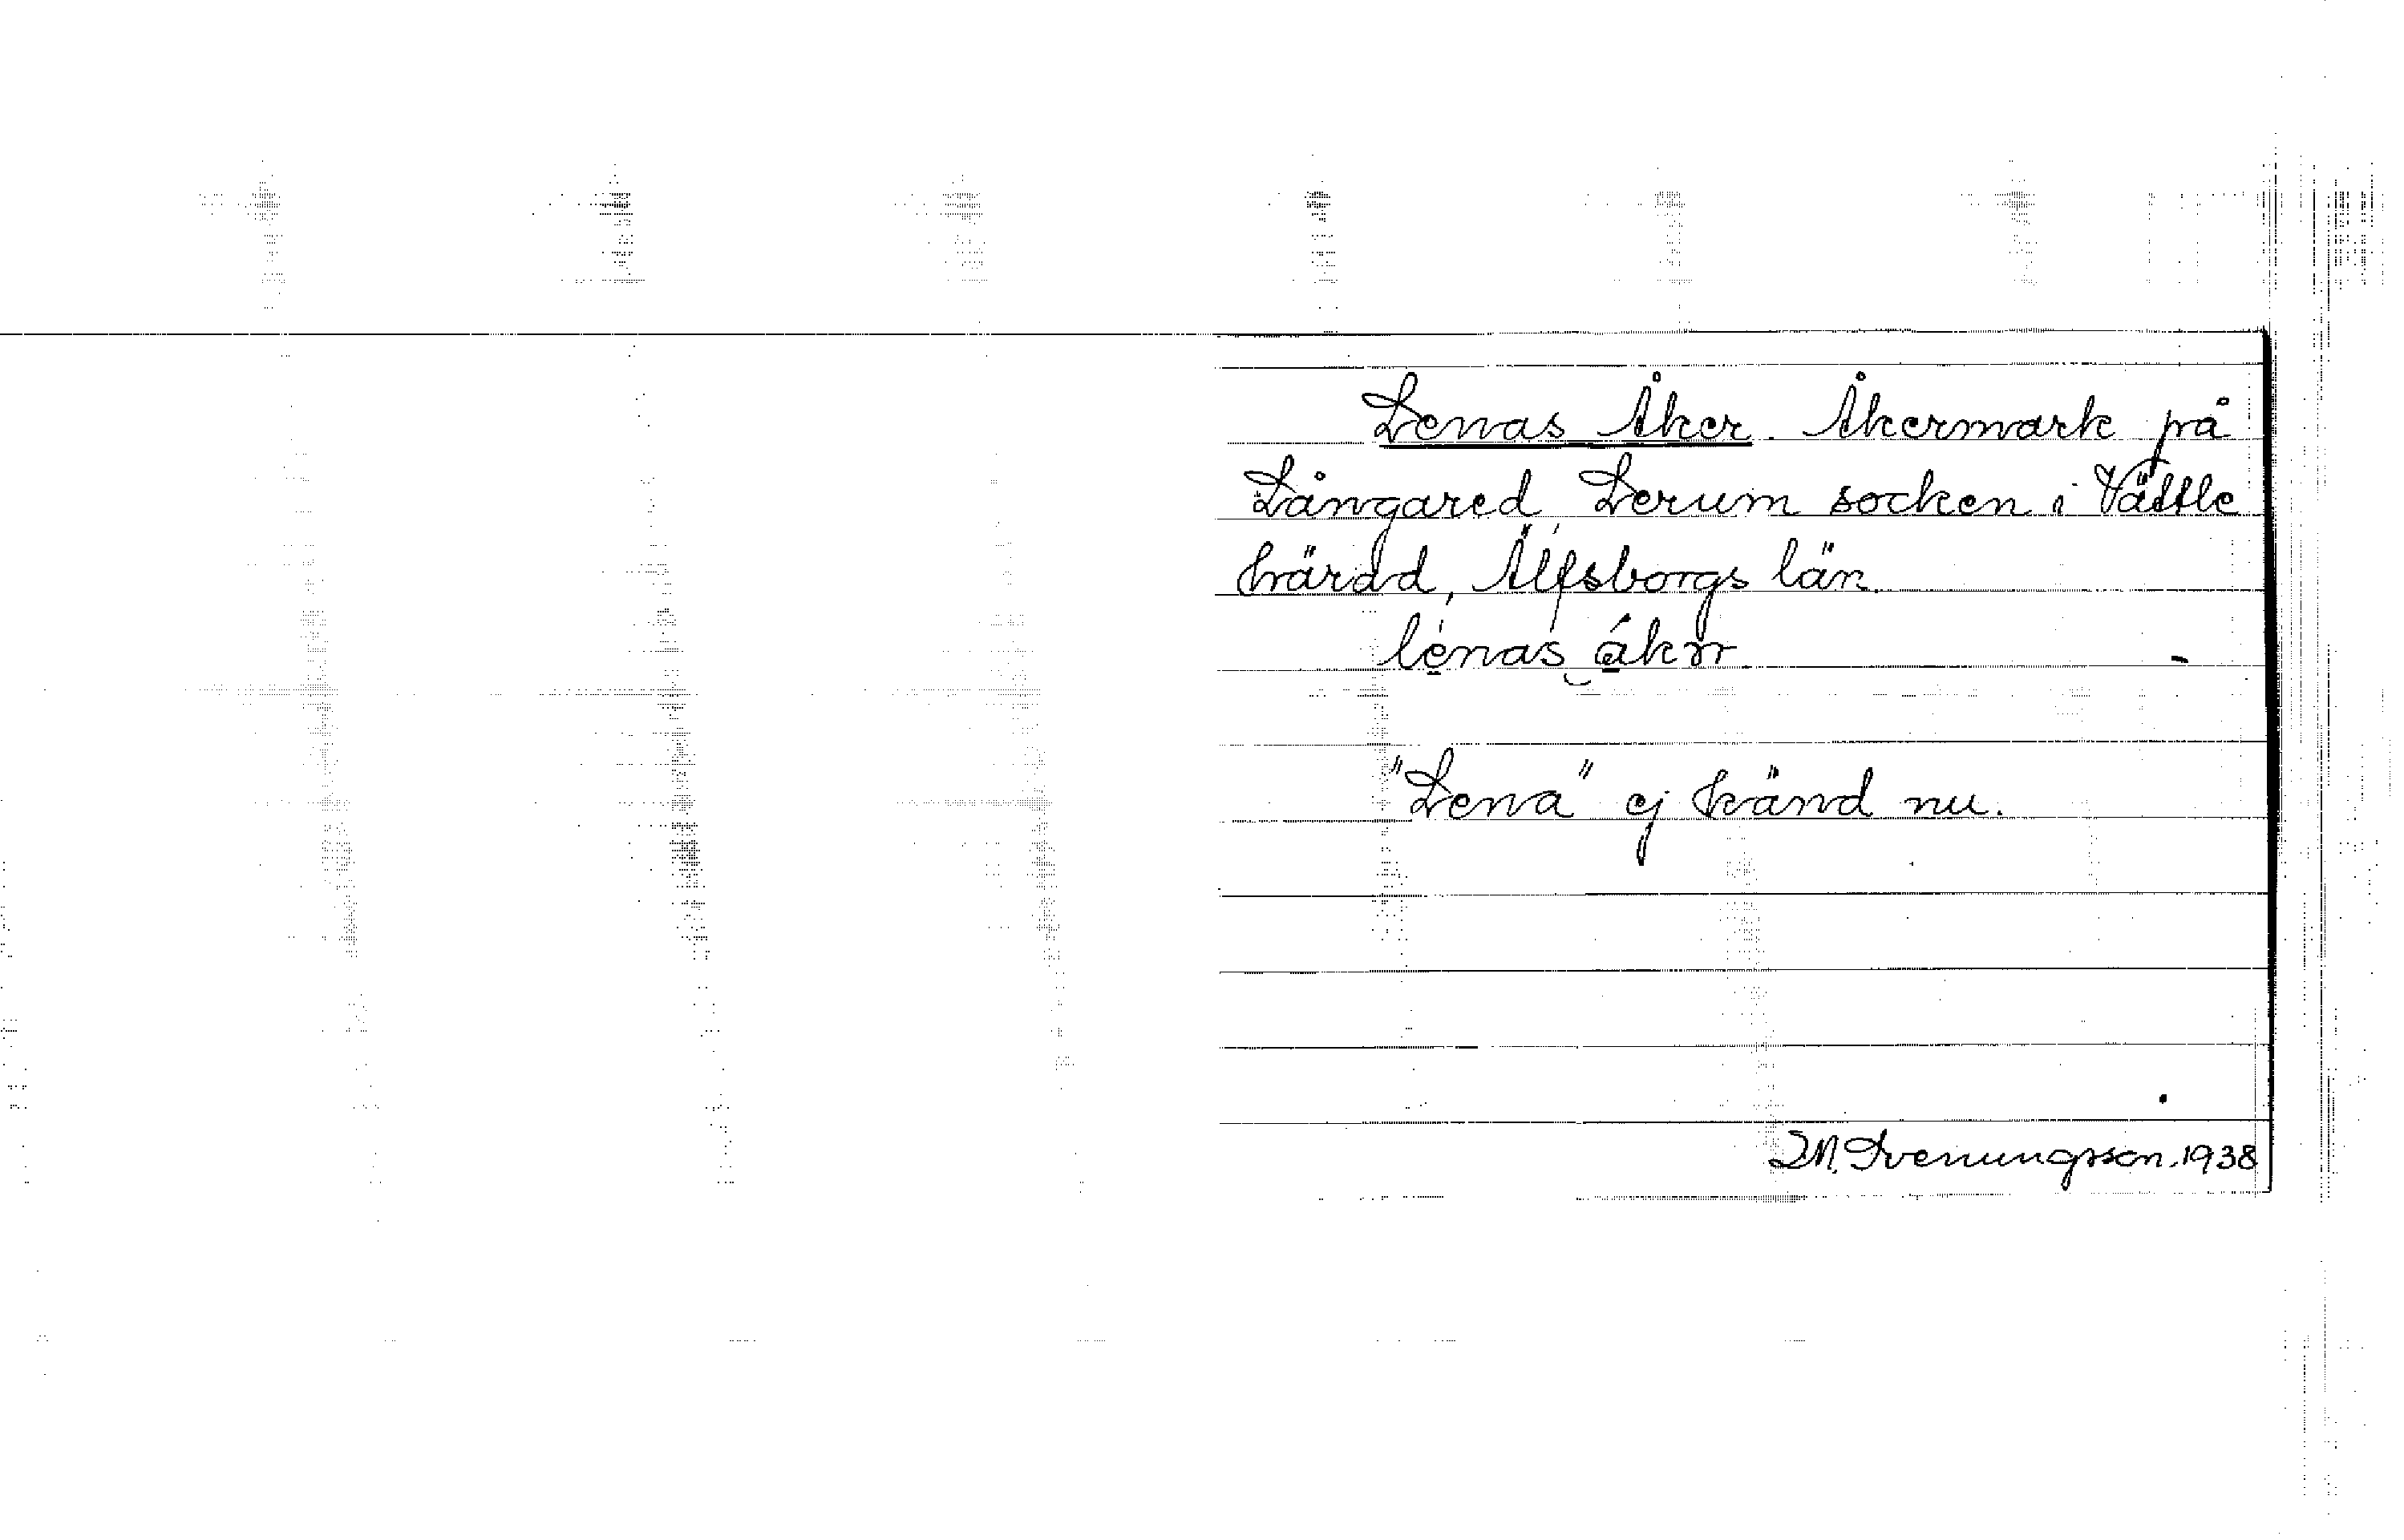 Lenas Åker. Åkermark på
Långared, Lerum socken i Vättle
härad, Älfsborgs län.
"Lena" ej känd nu.
J.M. Svenungsson. 1938